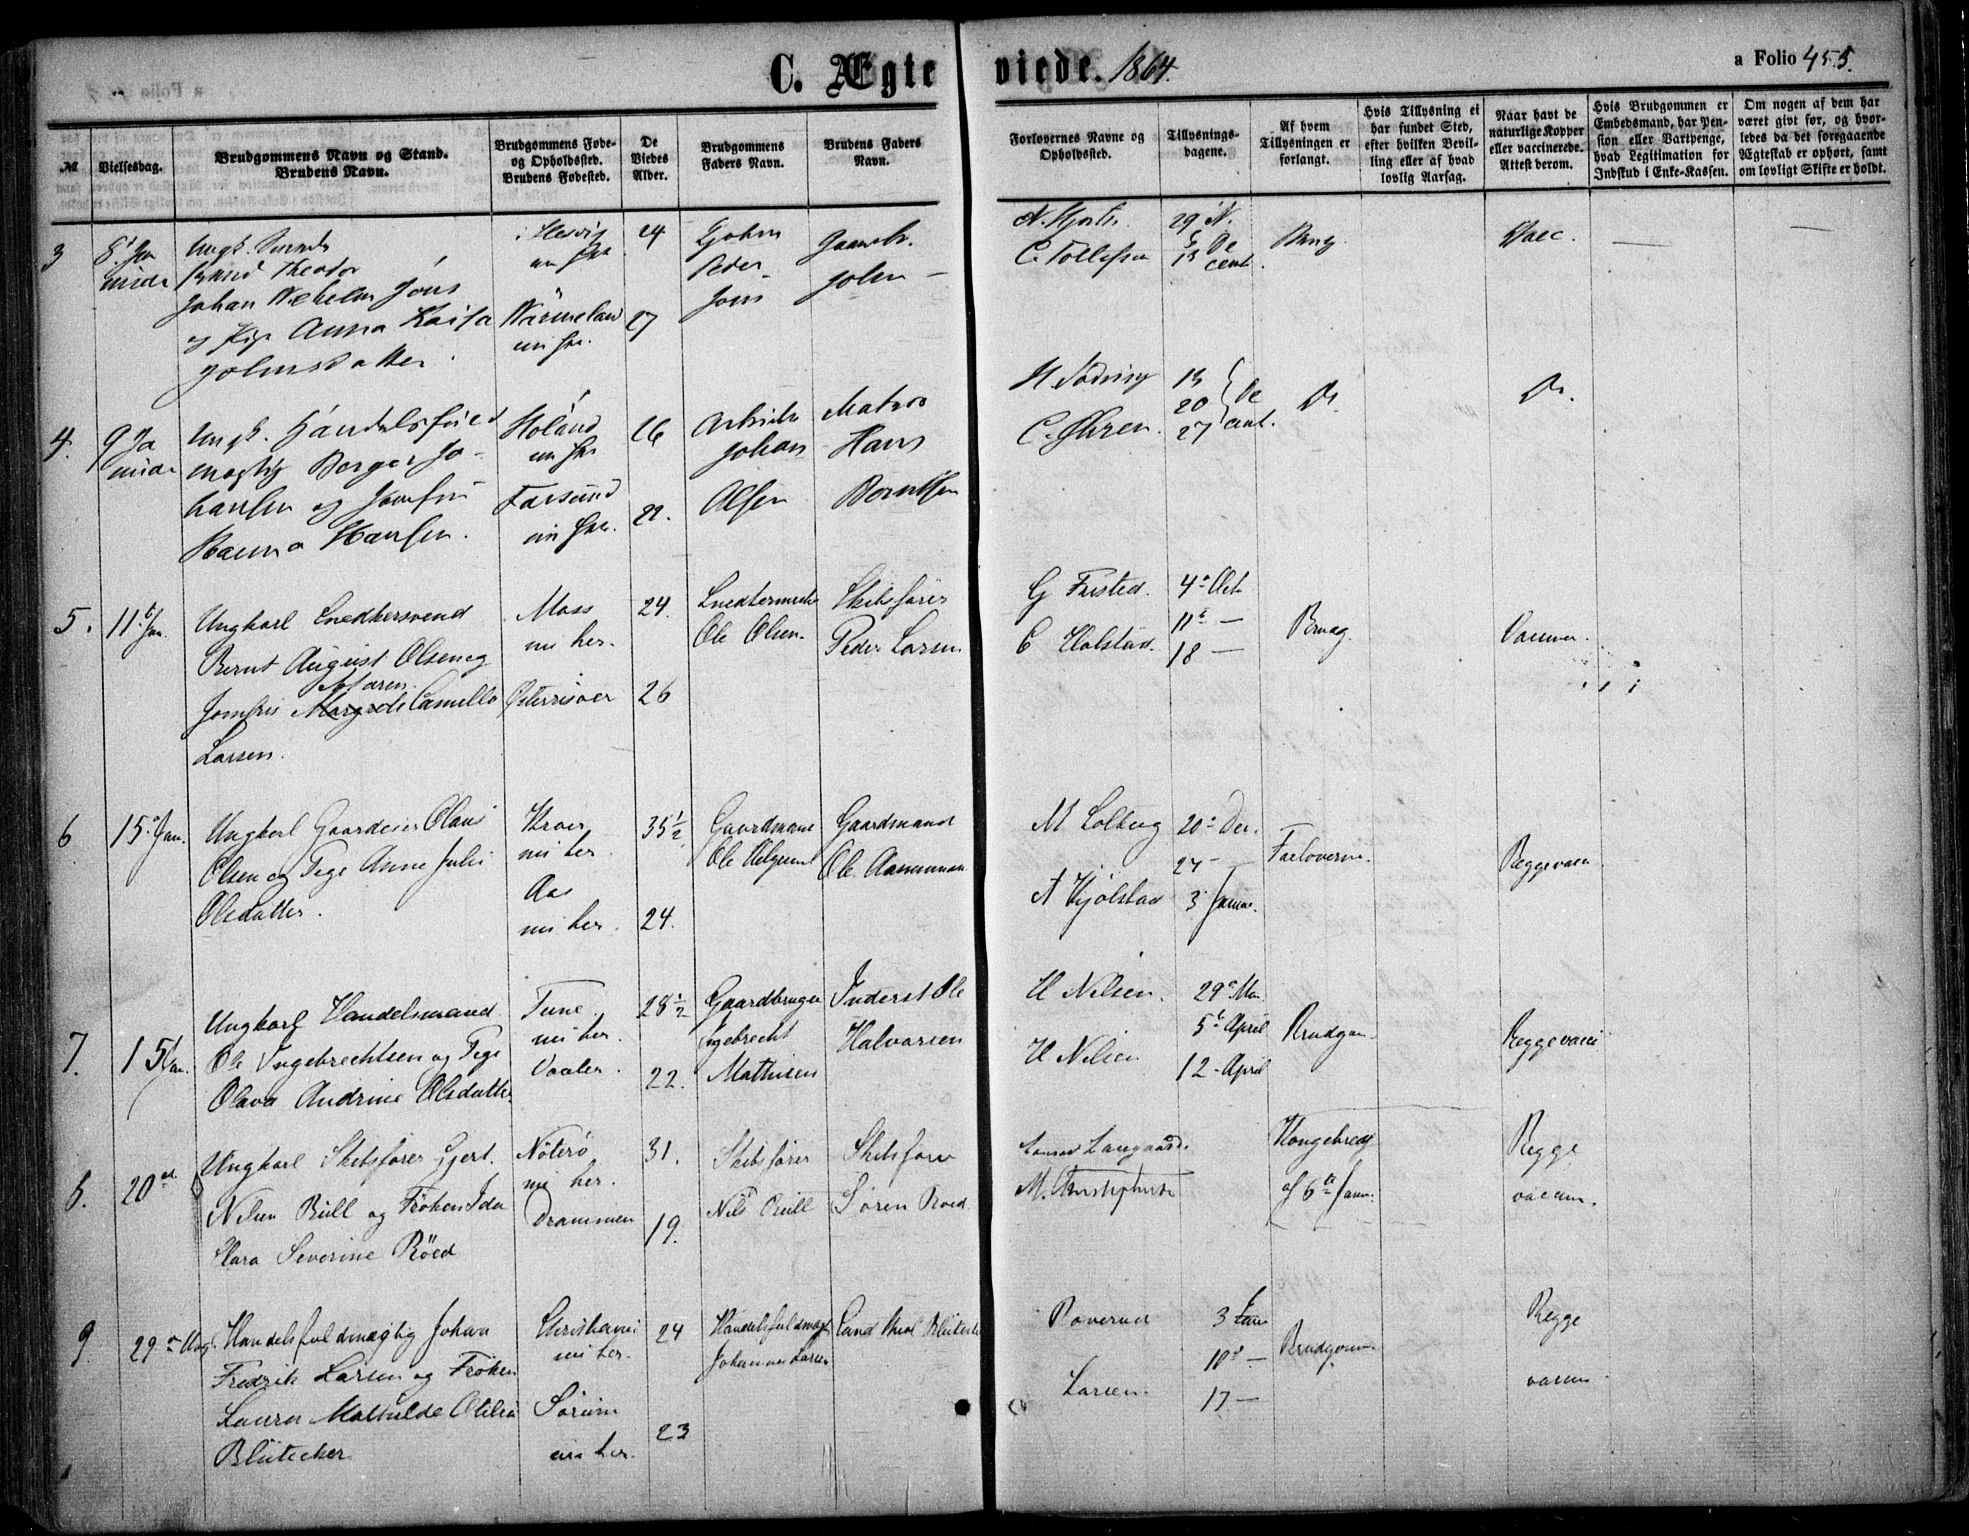 C. Ægteviede. 1864.
a Folio 455.
№
Vielsesdag.
Brudgommens Navn og Stand.
Brudens Navn.
Brudgommens Føde-
og Opholdssted.
Brudens Fødested.
De
Viedes
Alder.
Brudgommens
Faders Navn.
Brudens Faders
Navn.
Forlovernes Navne og
Opholdssted.
Tillysnings-
dagene.
Af hvem
Tillysningen er
forlangt.
Hvis Tillysning ei
har fundet Sted,
efter hvilken Bevil-
ling eller af hvad
lovlig Aarsag.
Naar havt de
naturlige Kopper
eller vaccinerede.
Attest derom.
Hvis Brudgommen er
Embedsmand, har Pen-
sion eller Vartpenge,
hvad Legitimation for
Indskud i Enke-Kassen.
Om nogen af dem har
været givt før, og hvor-
ledes da det foregaaende
Ægteskab er ophørt, samt
om lovligt Skifte er holdt.
3
Theodor
Johan
og Pige Anna Kaisa
24
27
Peder
29 N.
13
Vacc.
4.
9 Ja
Ungk. Handelsfuld
mægtig Berger Jo-
hansen og Jomfru
Hansen.
Höland
Farsund
26
22.
Arbeider
Johan
Olsen
Matros
Hans
Berntsen
C. Øhren.
13
20
27
Do.
Do.
5.
11te Jan.
Ungkarl Snedkersvend
Bernt August Olsen og
Maren
Jomfru Camilla
Larsen.
Moss
nu her.
Østerrisoer
24.
26
Snedkermester
Ole Olsen.
Skibsfører
Peder Larsen
G Fristed.
C Halstad.
4de Oct.
11te —
18 —
Brudg.
Vaccin.
6
15de Jan.
Ungkarl Gaardeier Olaus
Olsen og Pige Anne Julie
Olsdatter.
Kroer
nu her.
Aas
nu her.
35½
24.
Gaardmand
Ole
Gaardmand
Ole Aamund
M Solberg
A Kjølstad
20de Dec.
27 —
3 Januar.
Forloverne.
Beggevacc.
7.
15 Jan.
Ungkarl Handelsmand
Ole Ingebrechtsen og Pige
Olava Andrine Olsdatter
Tune
nu her.
Vaaler.
28½
22.
Gaardbruger
Ingebrecht
Mathisen
Inderst Ole
Halvorsen
H Nilsen.
H Nilsen
29de Mar.
5te April
12 - April
Brudgom.
Beggevacc
8.
20de
Ungkarl Skibsfører Gjert
Nilsen Bull og Frøken Ida
Clara Severine Röed
Nöterö
nu her.
Drammen
31.
19.
Skibsfører
Nils Bull
Skibsfører
Sören Roed
Langaard.
Kongebrev
af 6te Janu.
Begge
vaccin.
9.
29de Aug.
Handelsfuldmægtig Johan
Fredrik Larsen og Frøken
Laura Mathilde Otilia
Blütecher
Christiania
nu her.
Sörum
nu her.
24
23
Handelsfuldmægt
Johannes Larsen
Cand theol Blütecher
Larsen.
3
10de —
17 —
Brudgom.
Begge
vaccin.